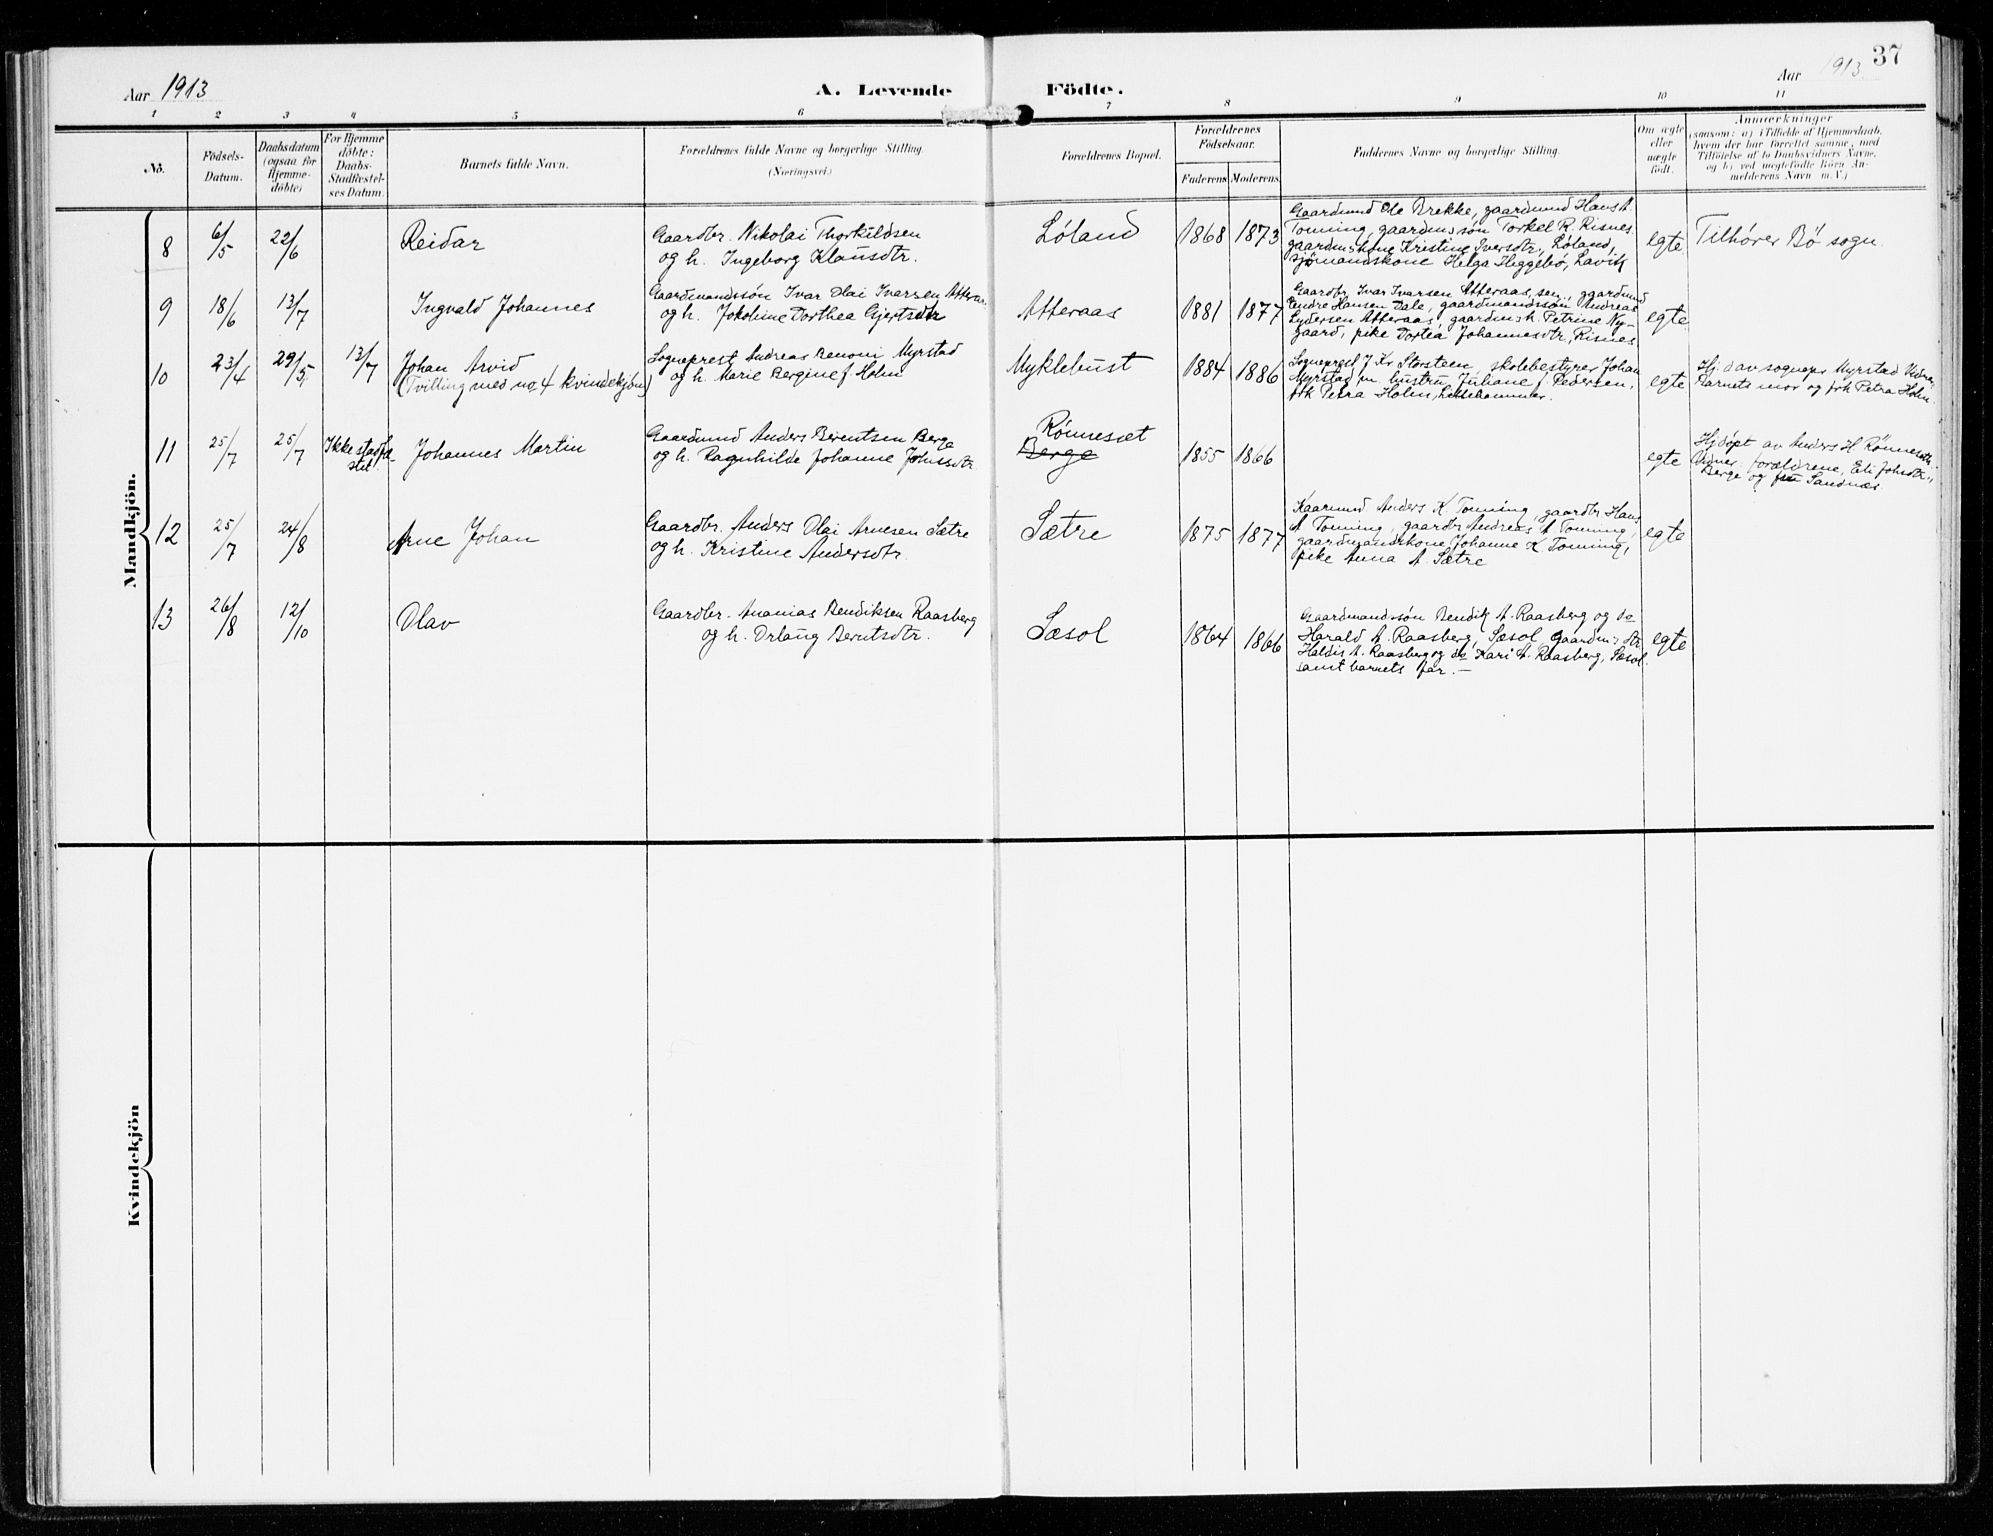 37
Aar 1913
A. Levende Födte.
Aar 1913
1 2 3 4 5 6 7 8 9 10 11
No.
Födsels-
Datum.
Daabsdatum
(ogsaa for
Hjemme-
döbte)
For Hjemme
döbte:
Daabs-
Stadfæstel-
ses Datum.
Barnets fulde Navn.
Forældrenes fulde Navne og borgerlige Stilling
(Næringsvei.)
Forældrenes Bopæl.
Forældrenes
Födselsaar.
Faderens Moderens
Faddernes Navne og borgerlige Stilling.
Om ægte
eller
uægte
födt.
Anmærkninger
(saasom: a) i Tilfælde af Hjemmedaab,
hvem der har forrettet samme, med
Tilföielse af to Daabsvidners Navne,
og b) ved uægtefödte Börn An-
melderens Navn m. V.)
Mandkjön.
8 6/5 22/6 Reidar
Gaardbr. Nikolai Thorkildsen
og h. Ingeborg Klausdtr.
Löland 1868 1873
Gaardmnd Ole Brekke, gaardmnd Hans A.
Tonning, gaardmssøn Torkel R. Risnes
gaardmskone Kristine Iversdtr, Løland,
sjømandskone Helga Heggebø, Lavik
egte
Tilhører Bø sogn.
9 18/6 13/7 Ingvald Johannes
Gaardmandssøn Ivar Olai Ivarsen Atteraas
og h. Jokobine Dorthea Gjertsdtr
Atteraas 1881 1877
Gaardbr Ivar Ivarsen Atteraas, sen., gaardmnd
Endre Hansen Dale, gaardmandssøn Andreas
Lydersen Atteraas, gaardmsk Petrine Ny-
gaard, pike Dortea Johannesdtr, Risnes
egte
10 23/4 29/5 13/7 Johan Arvid
(Tvilling med no. 4 kvindekjøn)
Sogneprest Andreas Benoni Myrstad
og h. Marie Bergine f. Holm
Myklebust 1884 1886
Sogneprest J Kr Storsteen, skolebestyrer Johan
Myrstad, hustru Juliane f. Pedersen,
frk Petra Holm, Lillehammer.
egte
Hj. d av sognepr Myrstad Vidner
Barnets mor og frk Petra Holm.
11 25/7 25/7 Ikke stadfæ-
stet
Johannes Martin
Gaardmnd Anders Berentsen Berge
og h. Ragnhilde Johanne Johnsdtr
Rönneset
Berge
1855 1866
egte
Hjdöpt av Anders H Rönneseth
Vidner, forældrene, Eli Johsdtr,
Berge og Sandnæs
12 25/7 24/8 Arne Johan
Gaardbr. Anders Olai Arnesen Sætre
og h. Kristine Andersdtr.
Sætre 1875 1877
Kaarmnd Anders K Tonning, gaardbr Hans
A Tonning, gaardbr Andreas A Tonning,
gaardmandskone Johanne K. Tonning,
pike Anna A. Sætre
egte
13 26/8 12/10 Olav
Gaardbr. Ananias Bendiksen Raasberg
og h. Orlaug Berntsdtr.
Sæsol 1864 1866
Gaardmandssøn Bendik A. Raasberg og do
Harald A. Raasberg, Sæsol, gaardms dtr
Haldis A. Raasberg og do Kari A. Raasberg, Sæsol
samt barnets far. —
egte
Kvindekjön